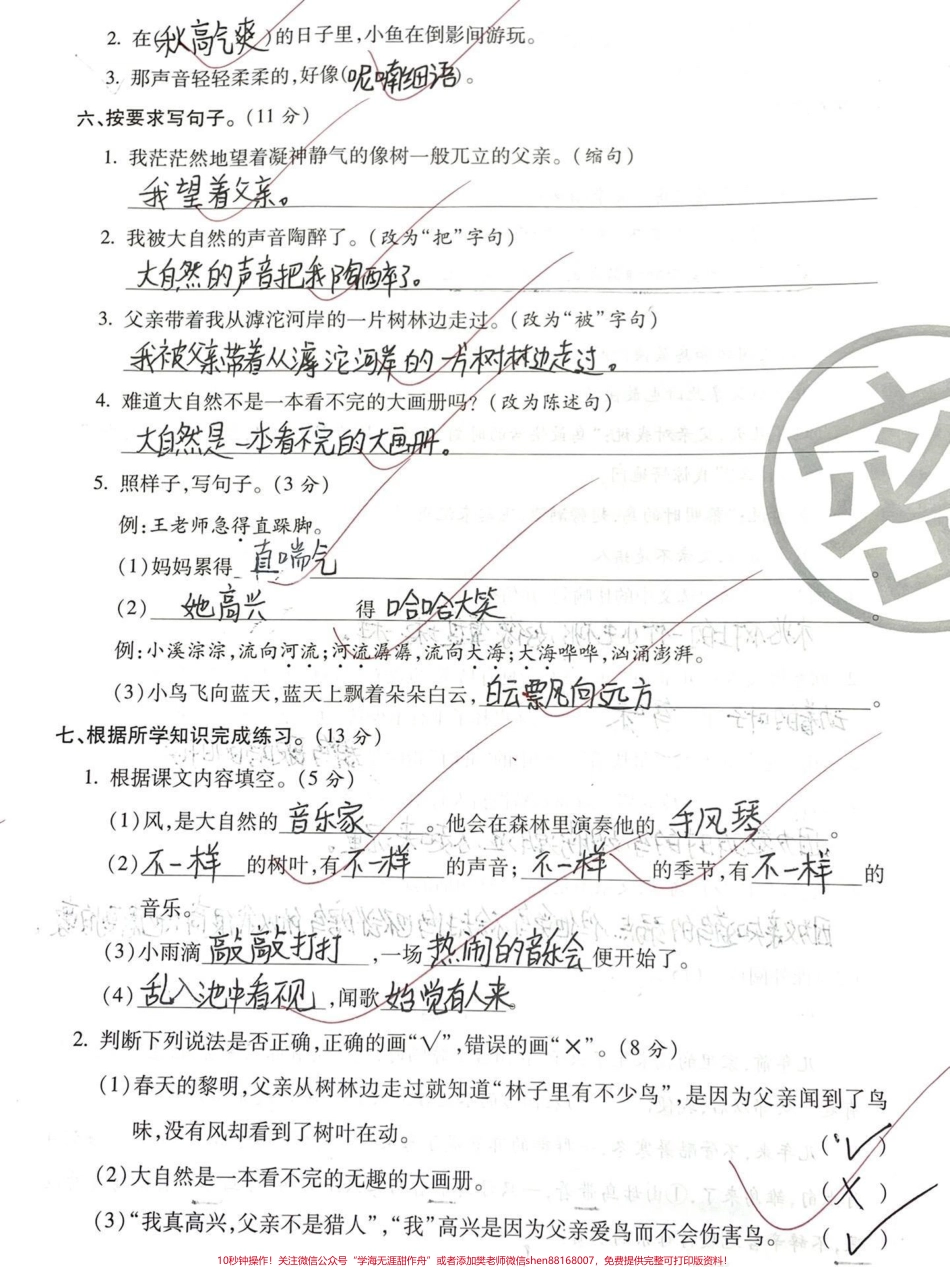 2. 在(秋高气爽)的日子里,小鱼在倒影间游玩。
3. 那声音轻轻柔柔的,好像(呢喃细语)。
六、按要求写句子。(11分)
1. 我茫茫然地望着凝神静气的像树一般兀立的父亲。(缩句)
我望着父亲。
2. 我被大自然的声音陶醉了。(改为“把”字句)
大自然的声音把我陶醉了。
3. 父亲带着我从滹沱河岸的一片树林边走过。(改为“被”字句)
我被父亲带着从滹沱河岸的一片树林边走过。
4. 难道大自然不是一本看不完的大画册吗?(改为陈述句)
大自然是一本看不完的大画册。
5. 照样子,写句子。(3分)
例:王老师急得直跺脚。
(1)妈妈累得 直喘气 。
(2) 她高兴 得 哈哈大笑 。
例:小溪淙淙,流向河流;河流潺潺,流向大海;大海哗哗,汹涌澎湃。
(3)小鸟飞向蓝天,蓝天上飘着朵朵白云, 白云飘向远方 。
七、根据所学知识完成练习。(13分)
1. 根据课文内容填空。(5分)
(1)风,是大自然的 音乐家 。他会在森林里演奏他的 手风琴 。
(2) 不一样 的树叶,有 不一样 的声音; 不一样 的季节,有 不一样 的
音乐。
(3)小雨滴 敲敲打打 ,一场 热闹的音乐会 便开始了。
(4) 乱入池中看不见 ,闻歌 始觉有人来。
2. 判断下列说法是否正确,正确的画“√”,错误的画“×”。(8分)
(1)春天的黎明,父亲从树林边走过就知道“林子里有不少鸟”,是因为父亲闻到了鸟
味,没有风却看到了树叶在动。 (√)
(2)大自然是一本看不完的无趣的大画册。 (×)
(3)“我真高兴,父亲不是猎人”,“我”高兴是因为父亲爱鸟而不会伤害鸟。 (√)
密
10秒钟操作!关注微信公众号“学海无涯甜作舟”或者添加樊老师微信shen88168007,免费提供完整可打印版资料!